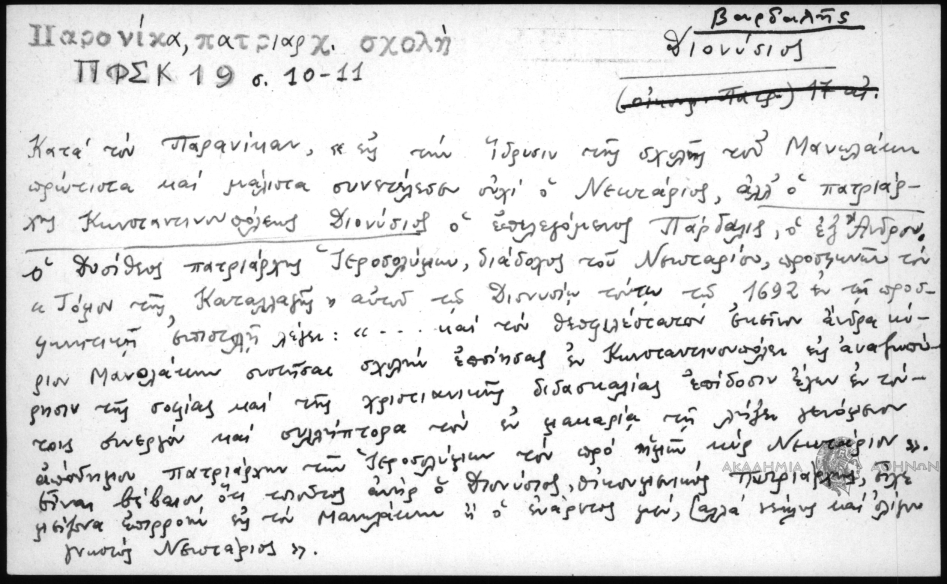 Βαρδαλῆς
Παρανίκα, πατριαρχ. σχολή
Διονύσιος
ΠΦΣΚ 19 σ. 10-11
(οἰκουμ. Πατρ.) 17 αἰ.
Κατά τόν Παρανίκαν, «εἰς τήν ἵδρυσιν τῆς σχολῆς τοῦ Μανωλάκη
πρώτιστα καί μάλιστα συνετέλεσεν οὐχί ὁ Νεκτάριος, ἀλλ' ὁ πατριάρ-
χης Κωνσταντινουπόλεως Διονύσιος ὁ ἐπιλεγόμενος Πάρδαλις, ὁ ἐξ Ἄνδρου.
ὁ Δοσίθεος πατριάρχης Ἱεροσολύμων, διάδοχος τοῦ Νεκταρίου, προσφωνῶν τόν
«Τόμον τῆς Καταλλαγῆς» αὐτοῦ τῷ Διονυσίῳ τούτῳ τῷ 1692 ἐν τῇ προσ-
φωνητικῇ ἐπιστολῇ λέγει: «.... καί τόν θεοφιλέστατον ἐκεῖνον ἄνδρα κύ-
ριον Μανολάκην συστήσας σχολήν ἐποίησας ἐν Κωνσταντινουπόλει εἰς ἀναζωπύ-
ρησιν τῆς σοφίας καί τῆς χριστιανικῆς διδασκαλίας ἐπίδοσιν ἔχων ἐν τού-
τοις συνεργόν καί συλλήπτορα τόν ἐν μακαρίᾳ τῇ λήξει γενόμενον
ἀοίδημον πατριάρχην τῆς Ἱεροσολύμων τόν πρό ἡμῶν κύρ Νεκτάριον».
εἶναι βέβαιον ὅτι τοιοῦτος ἀνήρ ὁ Διονύσιος, οἰκουμενικός Πατριάρχης, εἶχε
μείζονα ἐπιρροήν εἰς τόν Μανωλάκην ἤ ὁ ἐνάρετος μέν, ἀλλά καί ὀλίγον
γνωστός Νεκτάριος».
ΑΚΑΔΗΜΙΑ ΑΘΗΝΩΝ